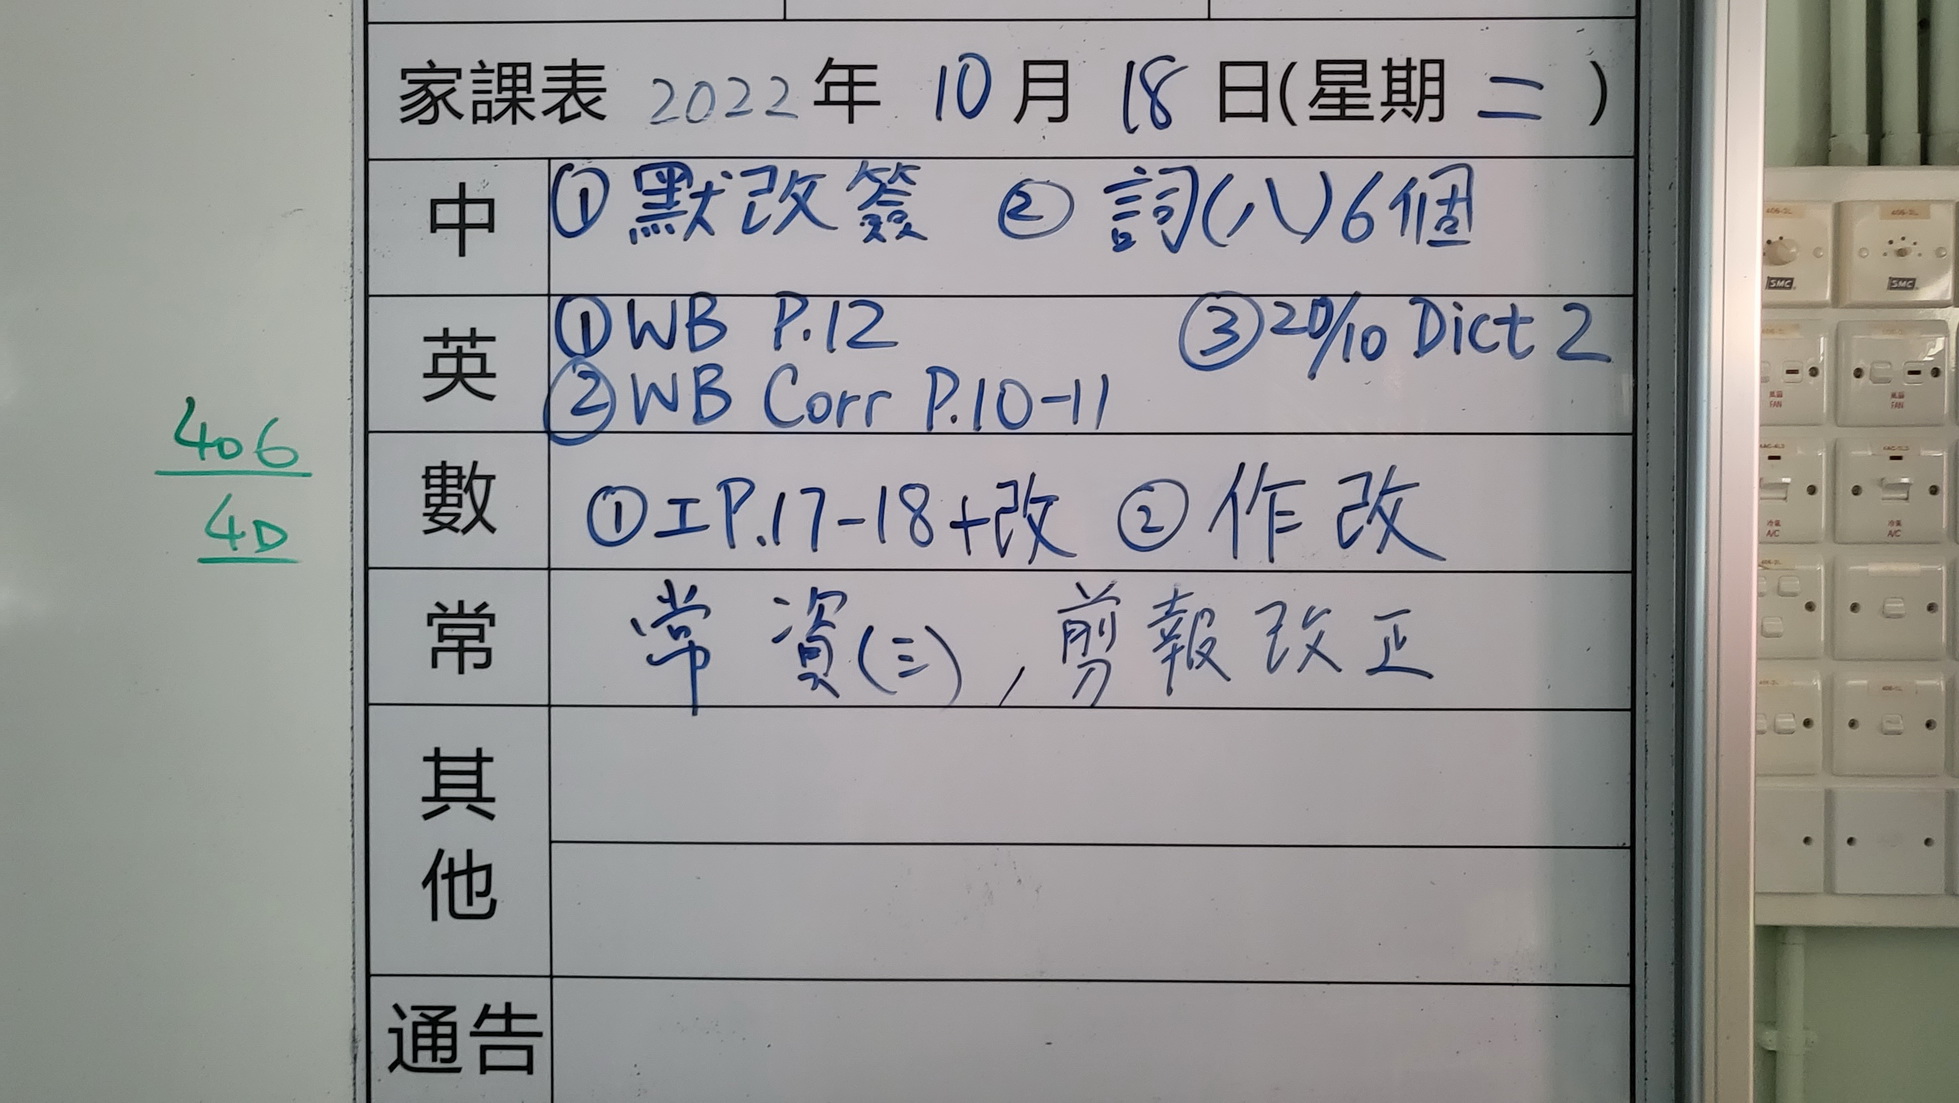 家課表 2022 年 10 月 18 日(星期 二 )
中 ① 默改簽 ② 詞(八)6個
英 ① WB P.12 ③ 20/10 Dict 2
② WB Corr P.10-11
數 ① 工P.17-18+改 ② 作改
常 常資(三), 剪報改正
其他
通告
406
4D
SMC
SMC
風扇
FAN
風扇
FAN
冷氣
A/C
冷氣
A/C